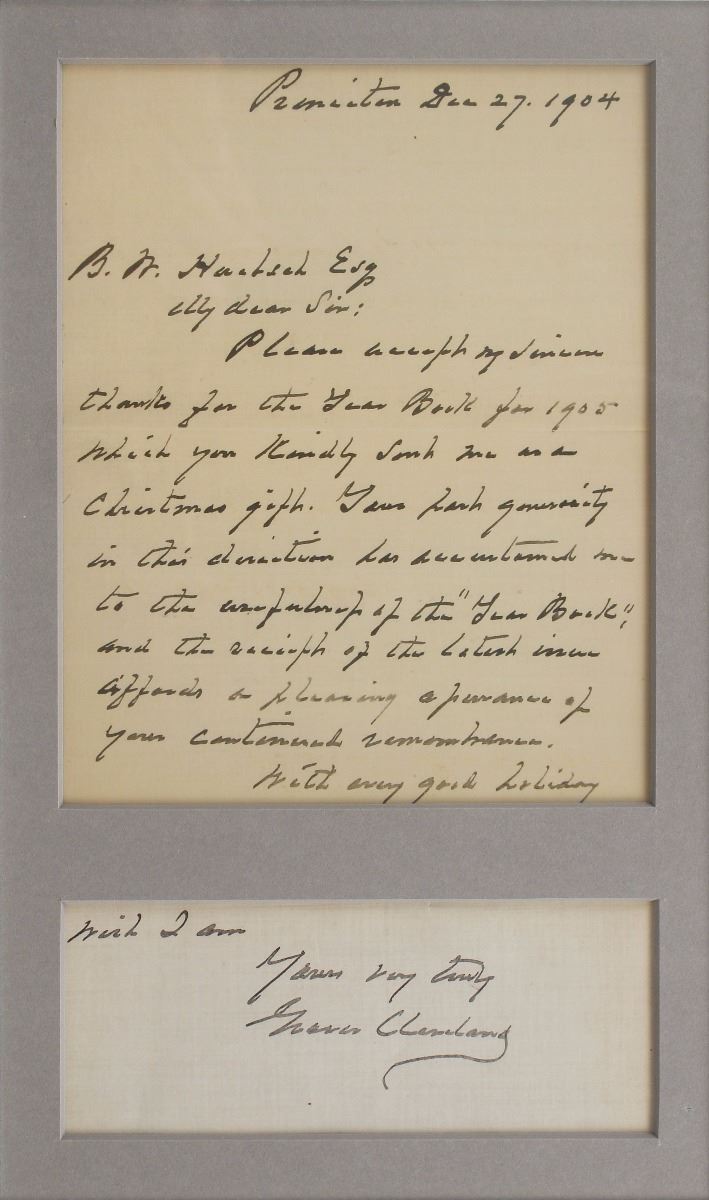 Princeton Dec 27. 1904
B. W. Huebsch Esq
My dear Sir:
Please accept my sincere
thanks for the Year Book for 1905
which you kindly sent me as a
Christmas gift. Your past generosity
in this direction has accustomed me
to the usefulness of the "Year Book",
and the receipt of the latest issue
affords a pleasing assurance of
your continued remembrance.
With every good holiday
wish I am
Yours very truly
Grover Cleveland